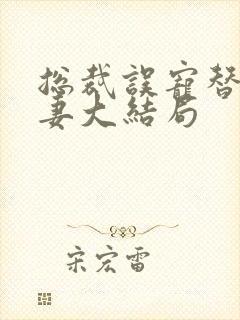 总裁误寵替
妻大結局
宋宏雷